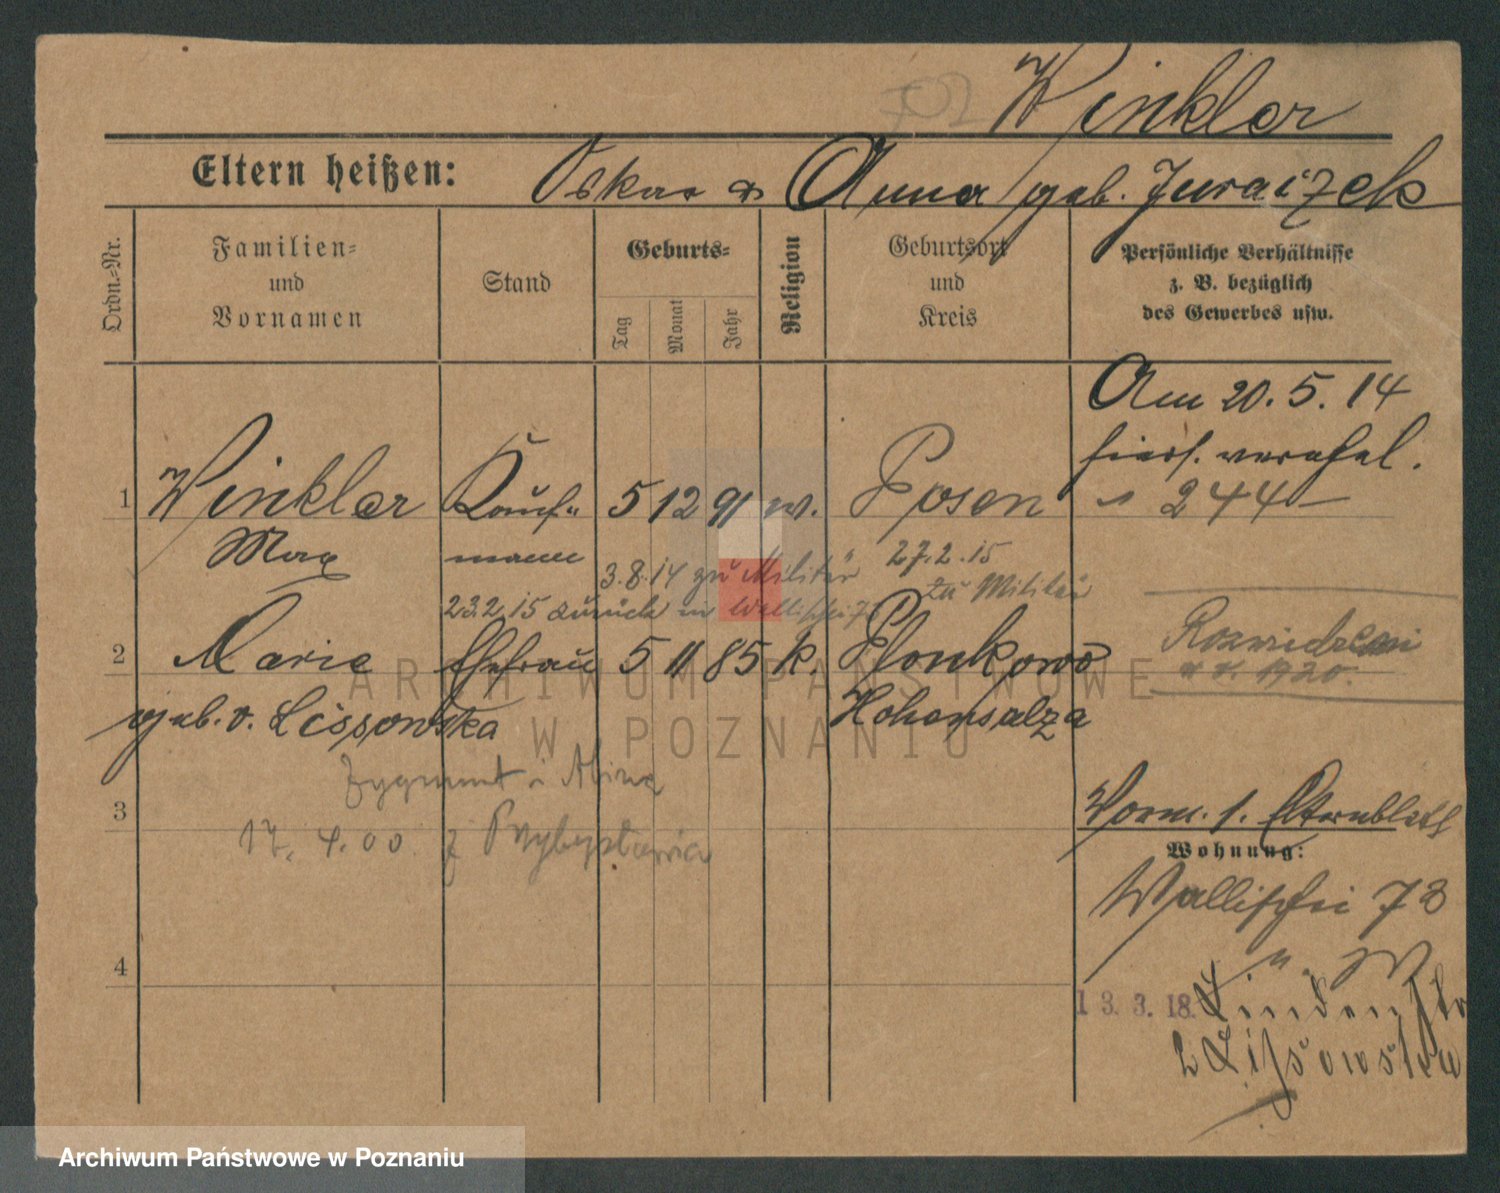 Winkler
Eltern heißen: Oskar & Anna geb. Juraizek
Ordn.-Nr.
Familien- und Vornamen
Stand
Geburts-
Tag
Monat
Jahr
Religion
Geburtsort und Kreis
Persönliche Verhältnisse z. B. bezüglich des Gewerbes usw.
Am 20. 5. 14
hiers. verehel.
244
1 Winkler Kauf- 5 12 91 Posen
Max mann
3.8.14 zu Militär
27.2.15 zu Militär
23.2.15 zurück in Wallischei 73
2 Marie Ehefrau 5 11 85 k. Plonkowo
geb. v. Lissowska Hohensalza
Rozwiedzeni
1920.
Zygmunt i
3
17. 4. 00 z
Vorm. 1. Elternblatt
Wohnung:
Wallischei 73
4
13. 3. 18. Lindenstr
Lissowska
ARCHIWUM PAŃSTWOWE
W POZNANIU
Archiwum Państwowe w Poznaniu